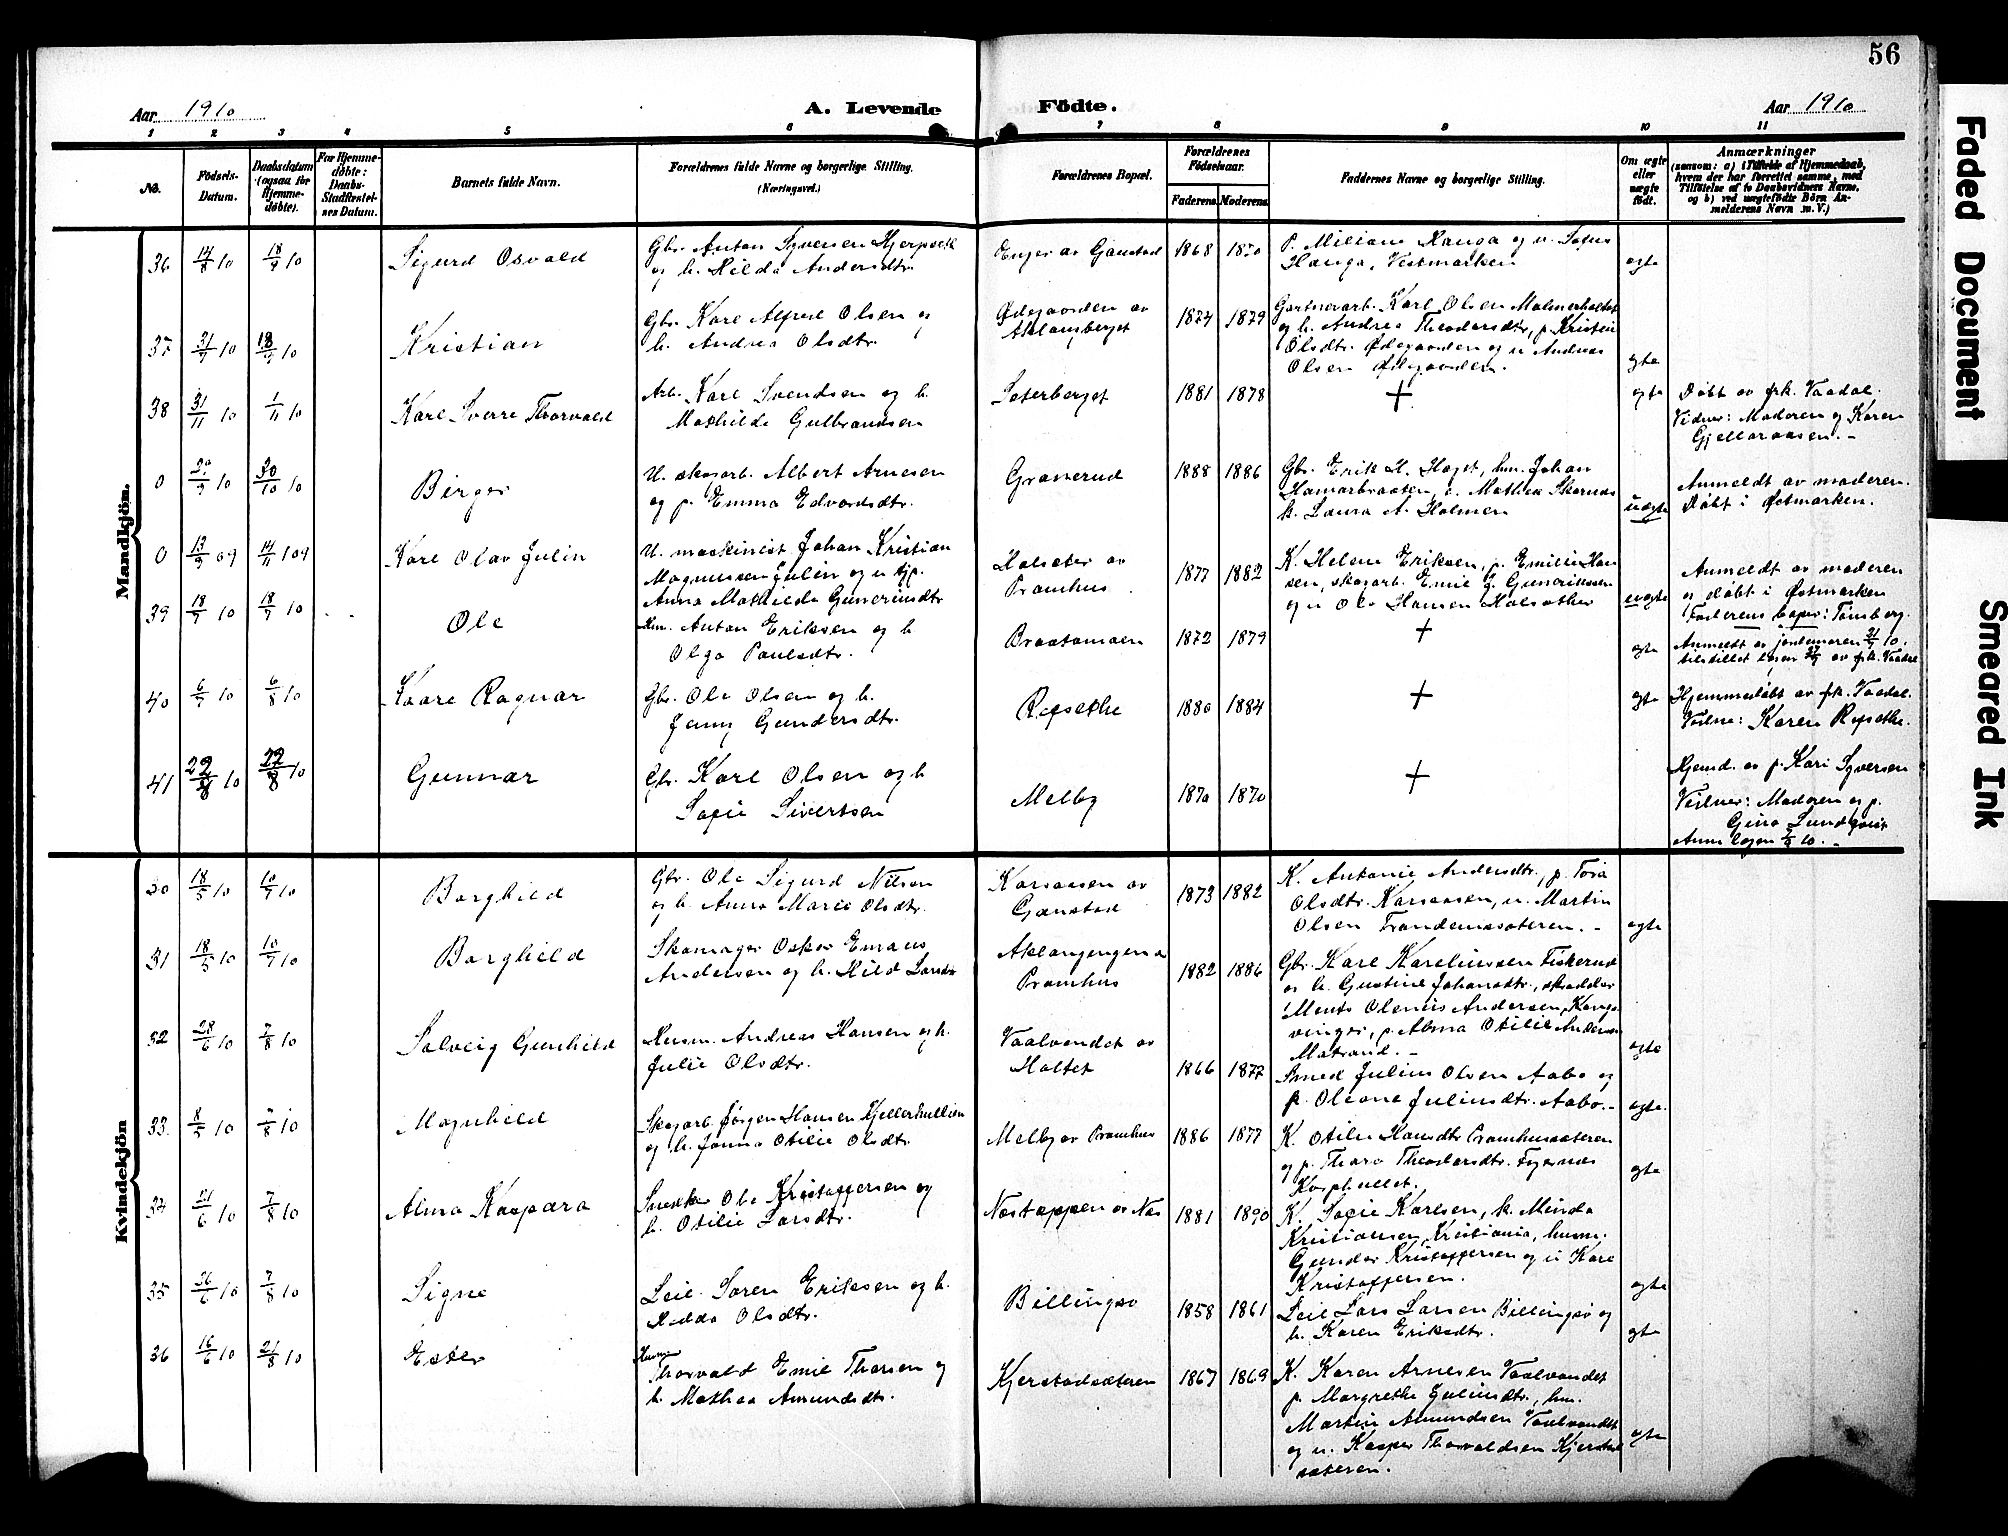 56
Aar 1910
A. Levende
Födte.
Aar 1910
1 2 3 4 5 6 7 8 9 10 11
No.
Födsels-
Datum.
Daabsdatum
(ogsaa for
Hjemme-
döbte).
For Hjemme-
döbte:
Daabs-
Stadfæstel-
ses Datum.
Barnets fulde Navn.
Forældrenes fulde Navne og borgerlige Stilling.
(Næringsvei.)
Forældrenes Bopæl.
Forældrenes
Födselsaar.
Faderens. Moderens.
Faddernes Navne og borgerlige Stilling.
Om ægte
eller
uægte
födt.
Anmærkninger
(saasom: a) i Tilfælde af Hjemmedaab,
hvem der har forrettet samme, med
Tilföielse af to Daabsvidners Navne,
og b) ved uægtefödte Börn An-
melderens Navn m. V.)
Mandkjön.
36 14/8 10 18/9 10 Sigurd Osvald
Gbr. Anton Syversen
og h. Hilda Andersdtr.
Enger av Gjæustad 1868
P. Miliane Hauga og u.
Hauga, Vestmarken
egte
37 31/7 10 18/9 10 Kristian
Gbr. Karl Alfred Olsen og
h. Andrea Olsdtr.
Ødegaarden av
Aklangberget
1874 1879
Gartnerarb. Karl Olsen
og h. Andrea Theodorsdtr, p. Kristin
Olsdtr. Ødegaarden og u Andreas
Olsen Ødegaarden.
egte
38 31/11 10 1/11 10 Karl Sverre Thorvald
Arb. Karl Svendsen og h.
Mathilde Gulbrandsen
Sæterberget 1881 1878 + egte
Døbt av frk. Vaadal.
Vidner: Moderen og Karen
Gjelleraasen. -
0 30/10 10 Birger
U. skogarb. Albert Arnesen
og p. Emma Edvardsdtr.
Granerud 1888 1886
Gbr. Erik H. Høgst, hm. Johan
Hamarbraaten, Mathea
k. Laura A. Holmen
uegte
Anmeldt av moderen.
Døbt i Østmarken.
0 09 14/11 109 Karl Olav Julin
U. maskinist Johan Kristian
Magnussen Julin og u tjp.
Anna Mathilde
Holsæter av
Pramhus
1877 1882
K. Helene Eriksen, p. Emilie Han
sen, skogarb. Emil
og u Ole Hansen Holsæther
uegte
Anmeldt av moderen
og døbt i Østmarken
Faderens bopæl: Tønsberg.
39 18/7 10 18/7 10 Ole
Hm. Anton Eriksen og h
Olga Paulsdtr.
Braatamoen 1872 1879 + egte
Anmeldt av jordemoren 31/7 10.
av frk. Vaadal
40 6/7 10 6/8 10 Kaare Ragnar
Gbr. Ole Olsen og h.
Jenny Gundersdtr.
Røgsethe 1880 1884 + egte
Hjemmedøbt av frk. Vaadal.
Vidne: Karen Røgsethe.
41 22/8 10 22/8 10 Gunnar
Gbr. Karl Olsen og h
Sofie Sivertsen
Melby 1870 1870 +
Hjemd. av p. Kari Syversen
Vidner: Moderen og p.
Gina Lundqvist
Kvindekjön
30 18/5 10 10/7 10 Borghild
Gbr. Ole Sigurd Nilsen
og h. Anna Marie Olsdtr.
Korsaasen av
Gjæustad
1873 1882
K. Antonie Andersdtr, p. Tora
Olsdtr. Korsaasen, u. Martin
Olsen Trandemssæteren. -
egte
31 18/5 10 10/7 10 Borghild
Skomager Oskar Emans
Andersen og h. Hild Larsdtr
Aklangengen a
Pramhus
1882 1886
Gbr. Karl Karelinssen Fiskerud
og h. Gustine Johansdtr, skrædder
Ments Olenius Andersen, Kongs
vinger, p. Alma Otilie Andersen
Matrand. -
egte
32 28/6 10 7/8 10 Solveig Gunhild
Husm. Andreas Hansen og h.
Julie Olsdtr.
Vaalvandet av
Holtet
1866 1877
Smed Julius Olsen Aabo og
p. Oleane Juliusdtr. Aabo. -
egte.
33. 8/5 10 7/8 10 Magnhild
Skogarb. Jørgen Hansen Kjellerhullien
og h. Janna Otilie Olsdtr.
Melby av Pramhus 1886 1877
K. Otilie Hansdtr Pramhussæteren
og p. Thora Theodorsdtr. Tyernæs
egte
34 21/6 10 7/8 10 Alma Kaspara
Snedker Ole Kristoffersen og
h. Otilie Larsdtr.
Næstoppen av Næs 1881 1890
K. Sofie Karlsen, k. Minda
Kristiansen, Kristiania, husm.
Gunder Kristoffersen og u Karl
Kristoffersen.
egte
35 26/6 10 7/8 10 Signe
Leil. Søren Eriksen og h.
Hedda Olsdtr.
Billingsø 1858 1861
Leil Lars Larsen Billingsø og
h. Karen Eriksdtr.
egte
36 16/6 10 21/8 10 Ester
Husm
Thorvald Emil Thorsen og
h. Mathea Amundsdtr.
Kjerstadsæteren 1867 1869
K. Karen Arnesen Vaalvandet
p. Margrethe Juliusdtr, hm.
Martin Amundsen Vaalvandet
og u. Kasper Thorvaldsen Kjerstad
sæteren.
egte
Faded Document
Smeared Ink